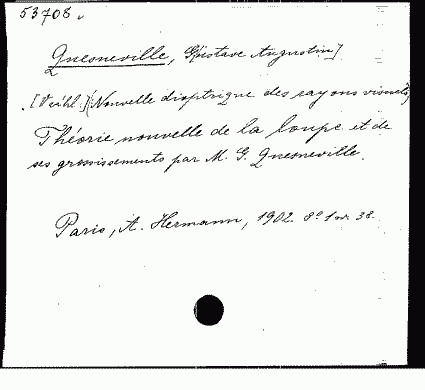 53708.
Quesneville, G[ustave Augustin]
[Nouvelle dioptrique des rayons visuels]
Théorie nouvelle de la loupe et de
ses grossissements par M. G. Quesneville.
Paris, A. Hermann, 1902. 8º 38.